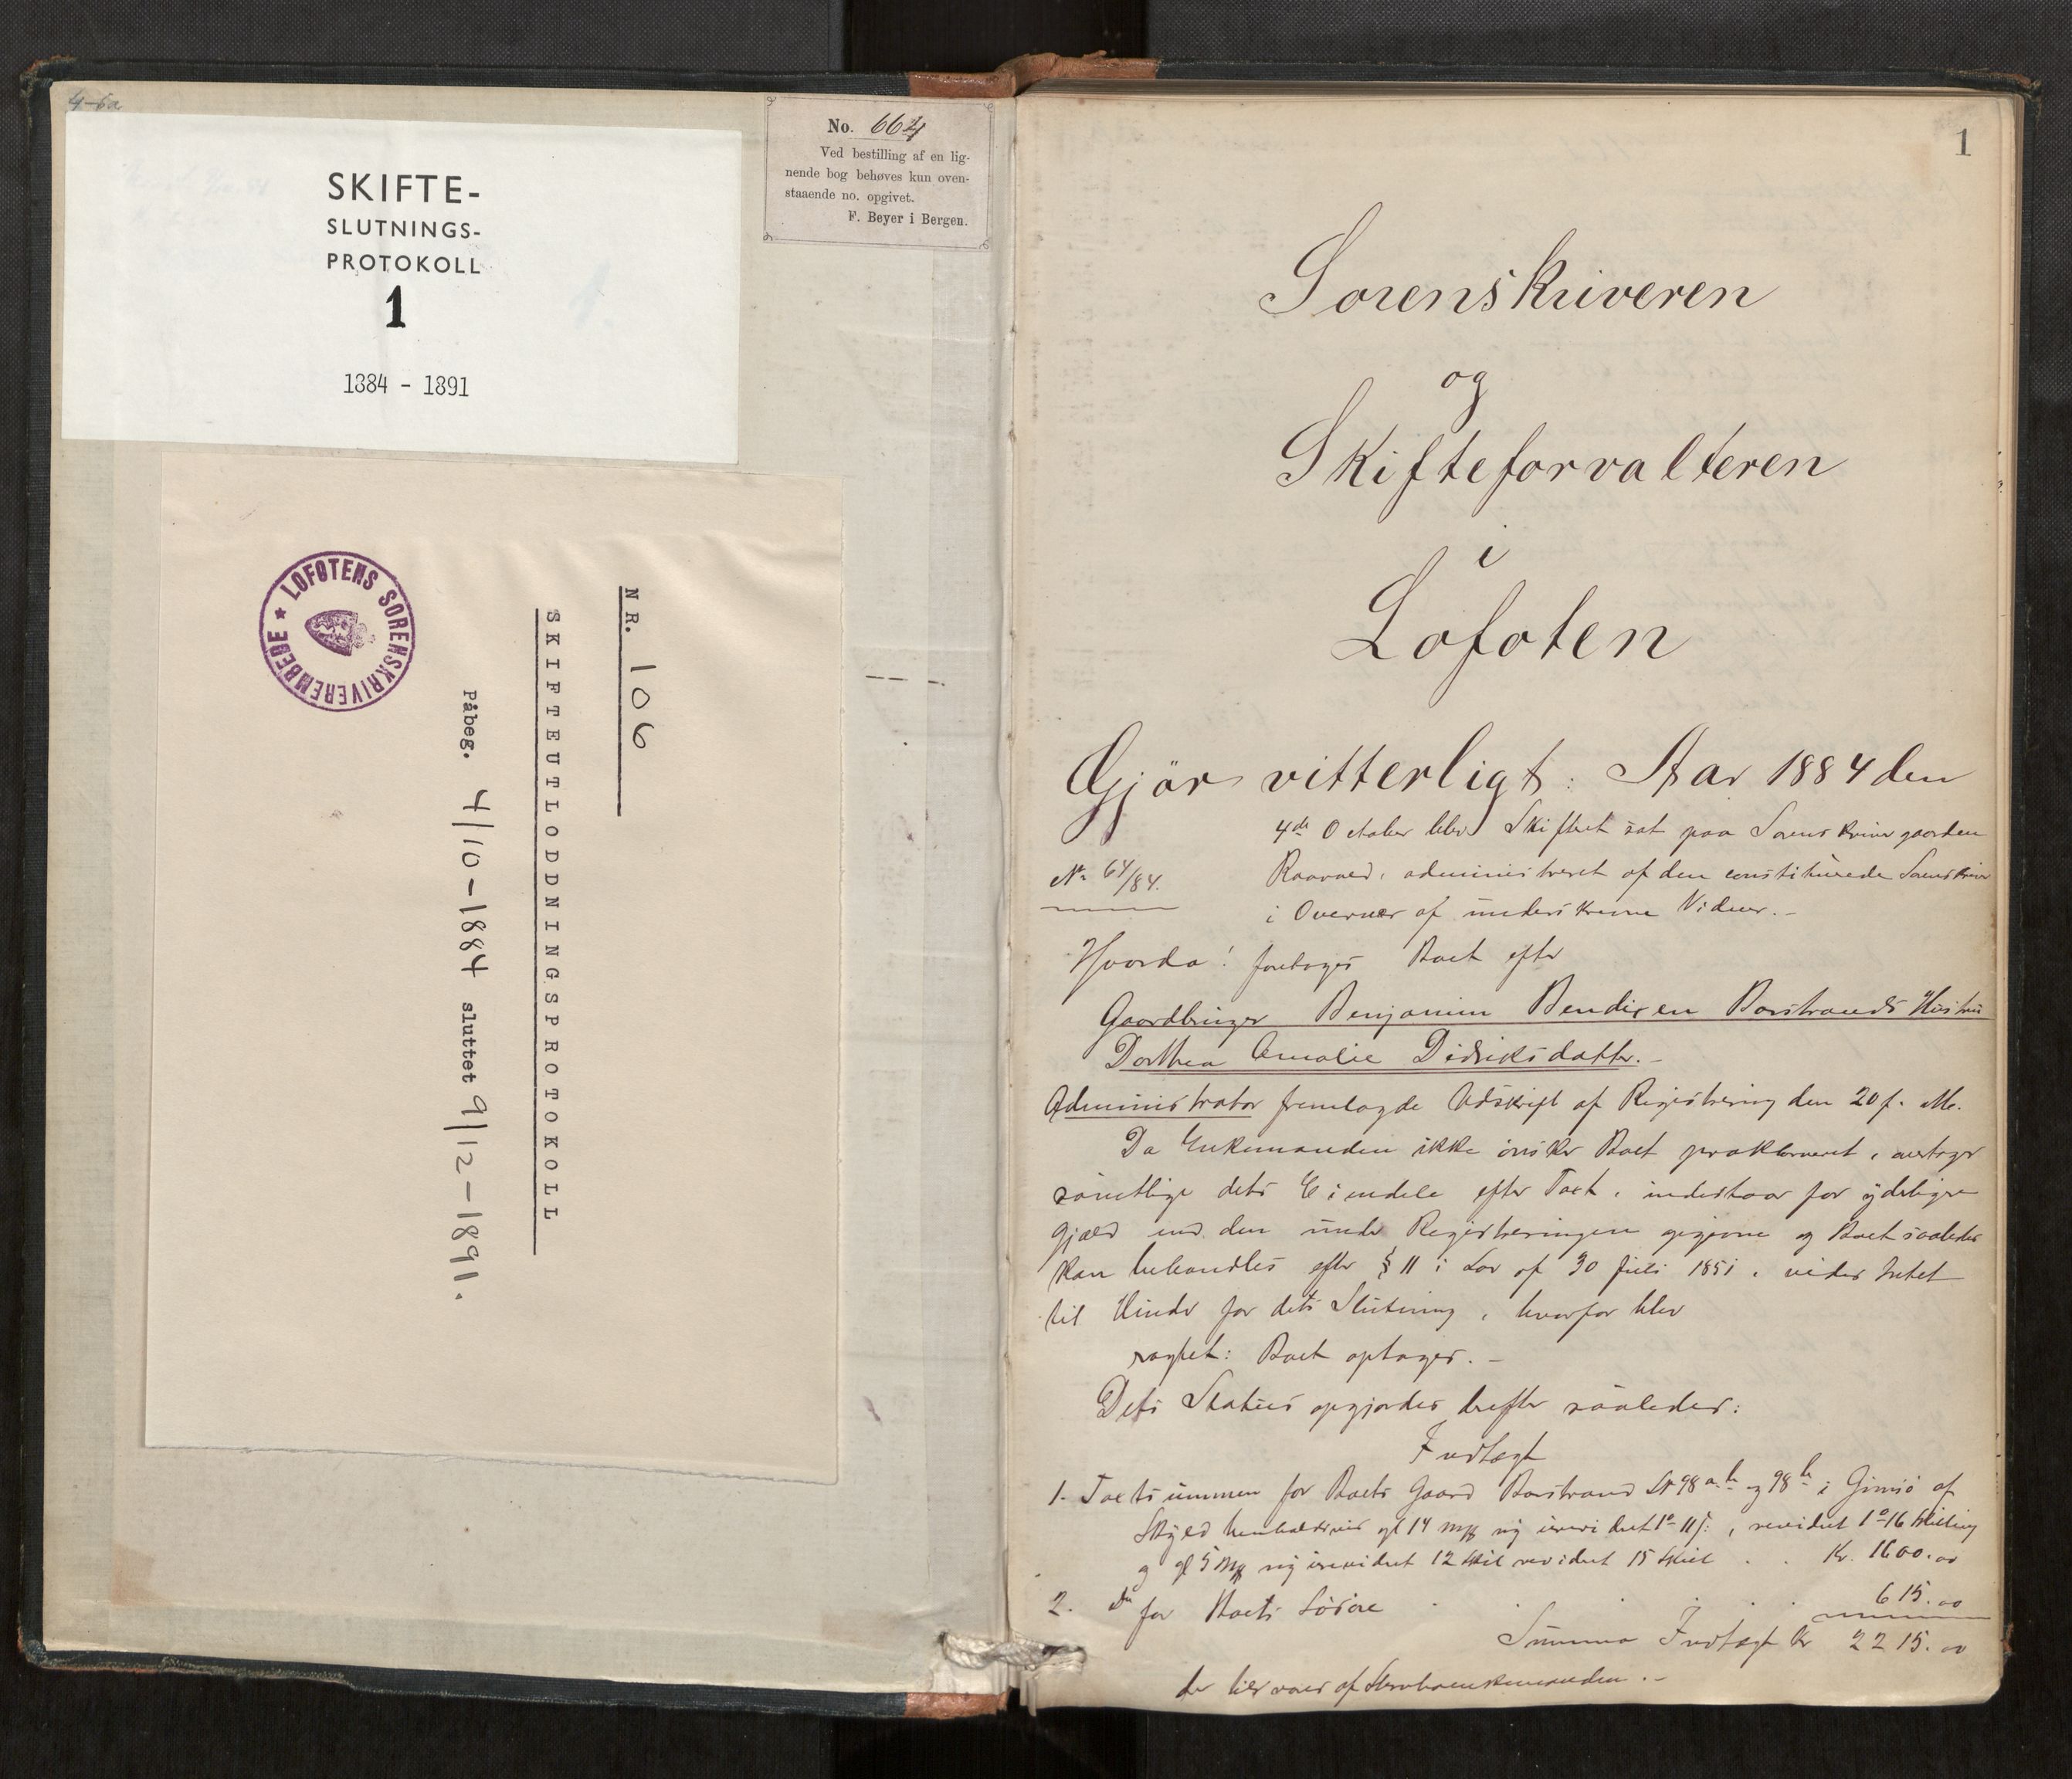 4-6a
SKIFTE-
SLUTNINGS-
PROTOKOLL
1
1884 - 1891
No. 664
Ved bestilling af en lig-
nende bog behøves kun oven-
staaende no. opgivet.
F. Beyer i Bergen.
NR. 106
SKIFTEUTLODDNINGSPROTOKOLL
Påbeg. 4/10-1884 sluttet 9/12-1891.
LOFOTENS SORENSKRIVEREMBEDE *
1
Sorenskriveren
og
Skifteforvalteren
i
Lofoten
Gjör vitterligt: Aar 1884 den
4de October blev Skifteret sat paa Sorenskrivergaarden
No 64/84.
administreret af den constituerede Sorenskriver
i Overvær af underskrevne Vidner.-
Hvorda! foretoges Boet efter
Gaardbruger Benjamin Bendixen Barstrands Hustru
Dorthea Amalie Didriksdatter.-
Administrator fremlagde Udskrift af Registrering den 20 f. M.
Da Enkemanden ikke önsker Boet proklameret, overtager
samtlige dets Eiendele efter Taxt, indestaar for yderligere
Gjæld end den under Registreringen opgivne og Boet saaledes
kan behandles efter § 11 i Lov af 30 Juli 1851, vides Intet
til Hinder for dets Slutning, hvorfor blev
Boet optages.-
Dets Status opgjordes derefter saaledes:
Indtægt
1. Taxtsummen for Boets Gaard Barstrand LN 98 a og 98 b i Gimsö af
Skyld henholdsvis gl 14 ny urevideret 1 - 11, revideret 1 - 16 Skilling
og gl 5 ny urevideret 12 Skil revideret 15 Skill . . Kr. 1600.00
2. Do for Boets Lösöre . . . . . 615.00
Summa Indtægt Kr 2215.00